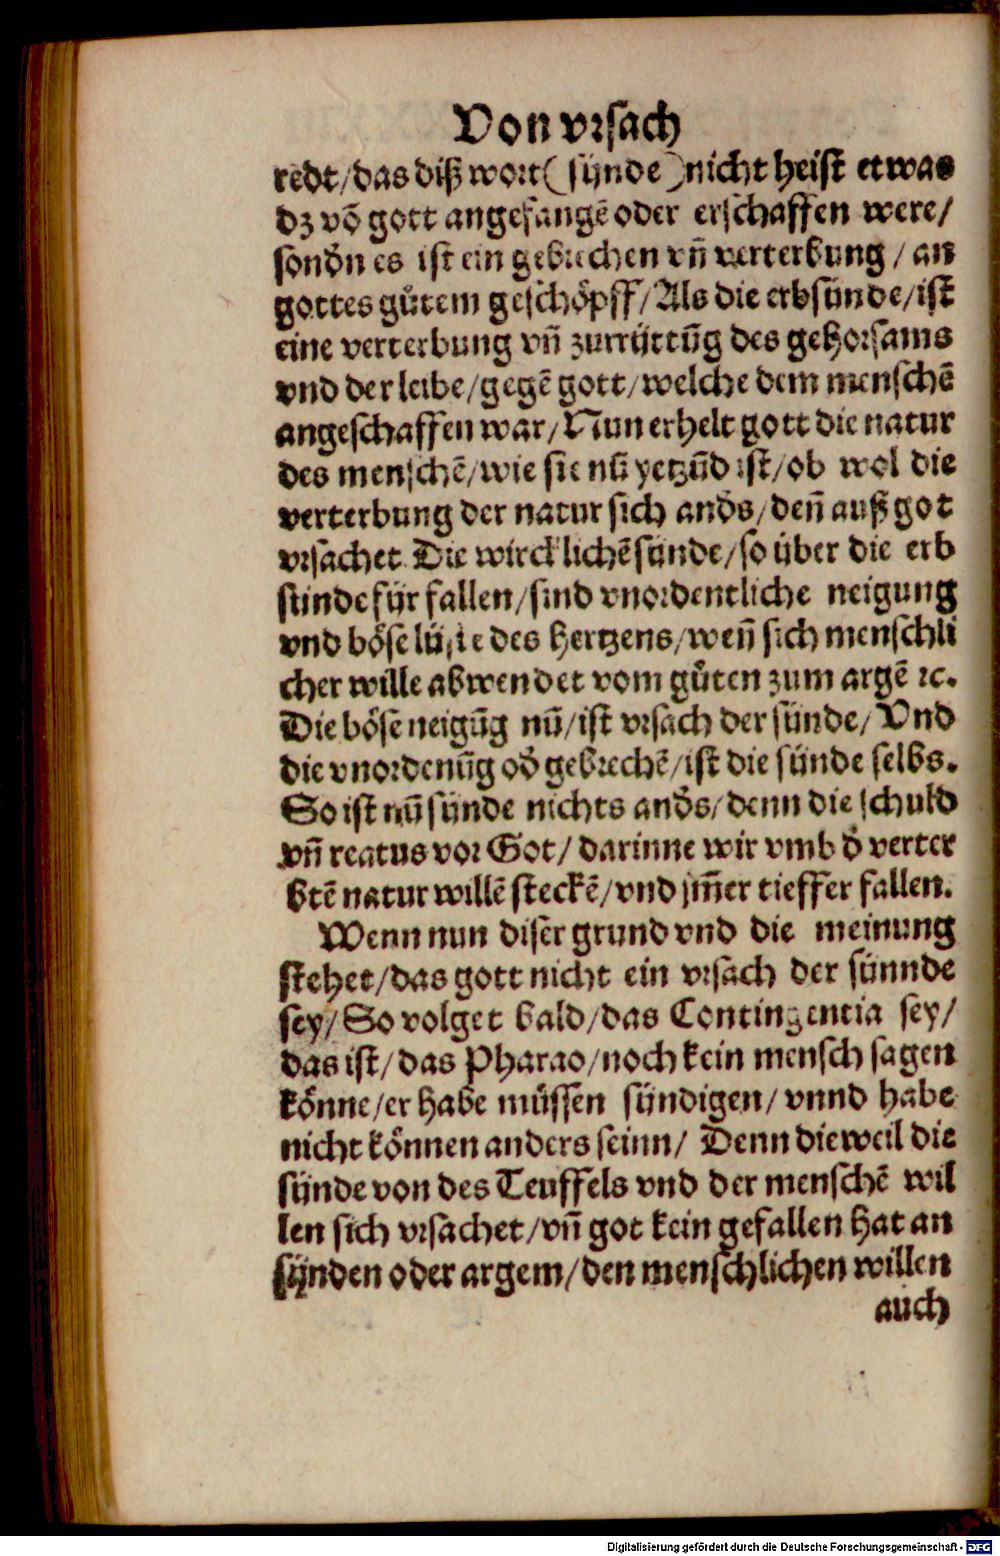 Von vrsach
redt/das diß wort (sünde) nicht heist etwas
dz vō gott angefangē oder erschaffen were/
sondn̄ es ist ein gebrechen vn̄ verterbung/an
gottes gůtem geschöpff/Als die erbsünde/ist
eine verterbung vn̄ zurrüttūg des gehorsams
vnd der leibe/gegē gott/welche dem menschē
angeschaffen war/Nun erhelt gott die natur
des menschē/wie sie nū yetzūd ist/ob wol die
verterbung der natur sich anđs/den̄ auß got
vrsachet Die wircklichē sünde/so über die erb
sünde für fallen/sind vnordentliche neigung
vnd böse lüste des hertzens/wen̄ sich menschli
cher wille abwendet vom gůten zum argē ꝛc.
Die böse neigūg nū/ist vrsach der sünde/Vnd
die vnordenūg ođ gebrechē/ist die sünde selbs.
So ist nū sünde nichts anđs/denn die schuld
vn̄ reatus vor Got/darinne wir vmb đ verter
btē natur willē steckē/vnd jm̄er tieffer fallen.
Wenn nun diser grund vnd die meinung
stehet/das gott nicht ein vrsach der sünnde
sey/So volget bald/das Contingentia sey/
das ist/das Pharao/noch kein mensch sagen
könne/er habe müssen sündigen/vnnd habe
nicht können anders seinn/Denn dieweil die
sünde von des Teuffels vnd der menschē wil
len sich vrsachet/vn̄ got kein gefallen hat an
sünden oder argem/den menschlichen willen
auch
Digitalisierung gefördert durch die Deutsche Forschungsgemeinschaft - DFG